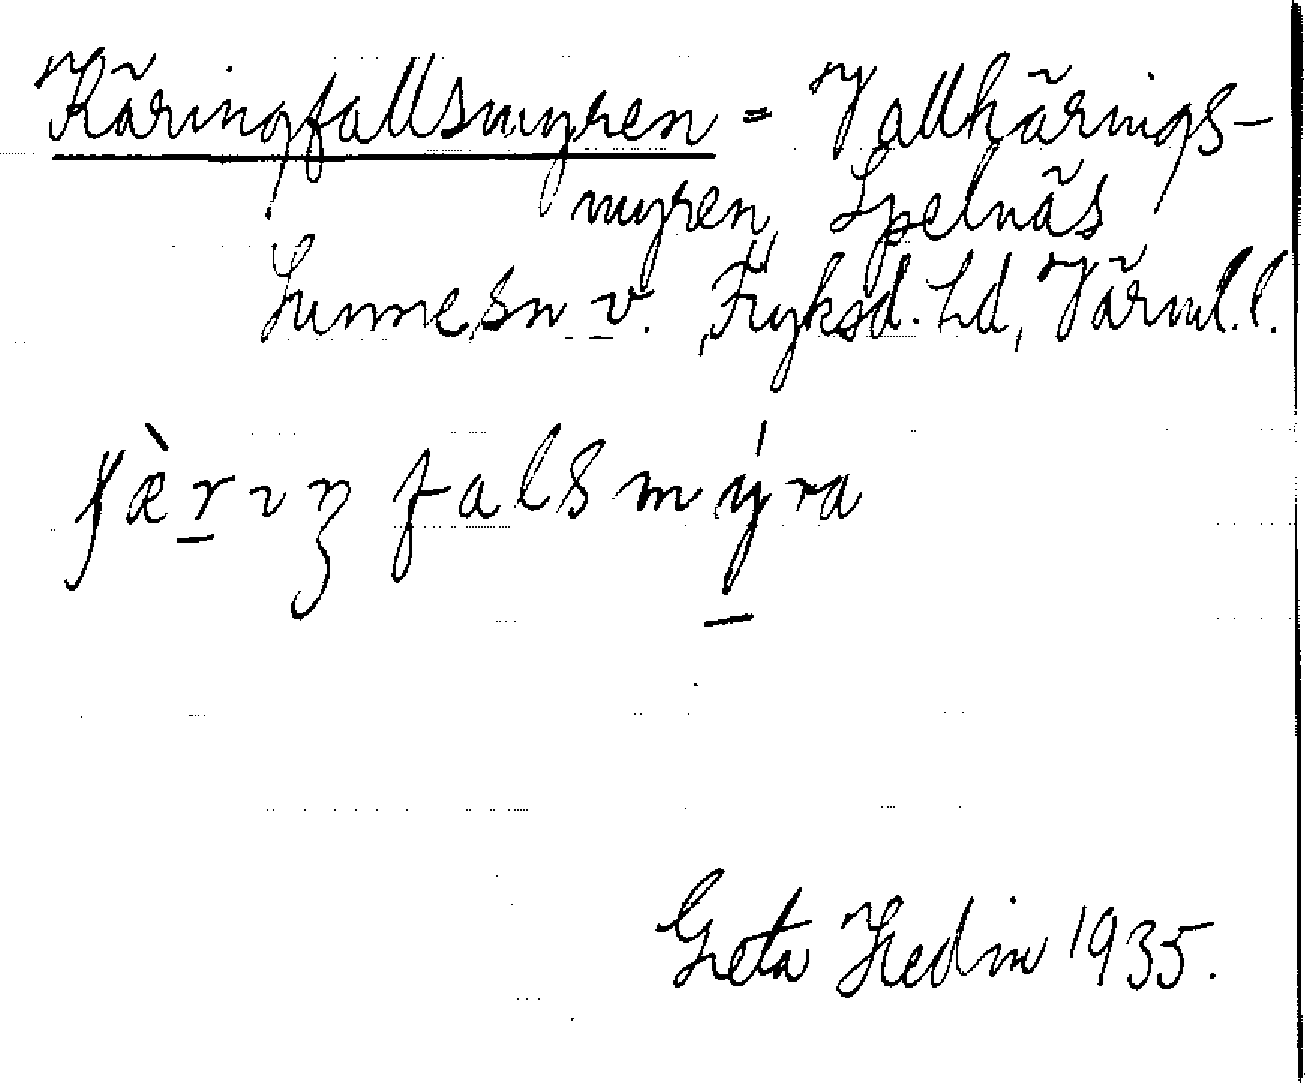 Käringfallsmyren = Vallkärings-
myren, Spelnäs
Sunne sn v. Fryksd. hd, Värml. l.
ʃæ̀rıŋfalsmýra
Greta Hedin 1935.